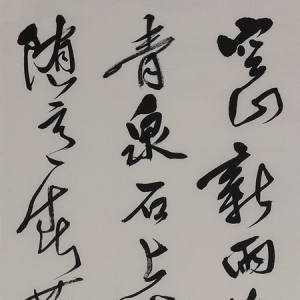 空山新雨
青泉石上
随意春